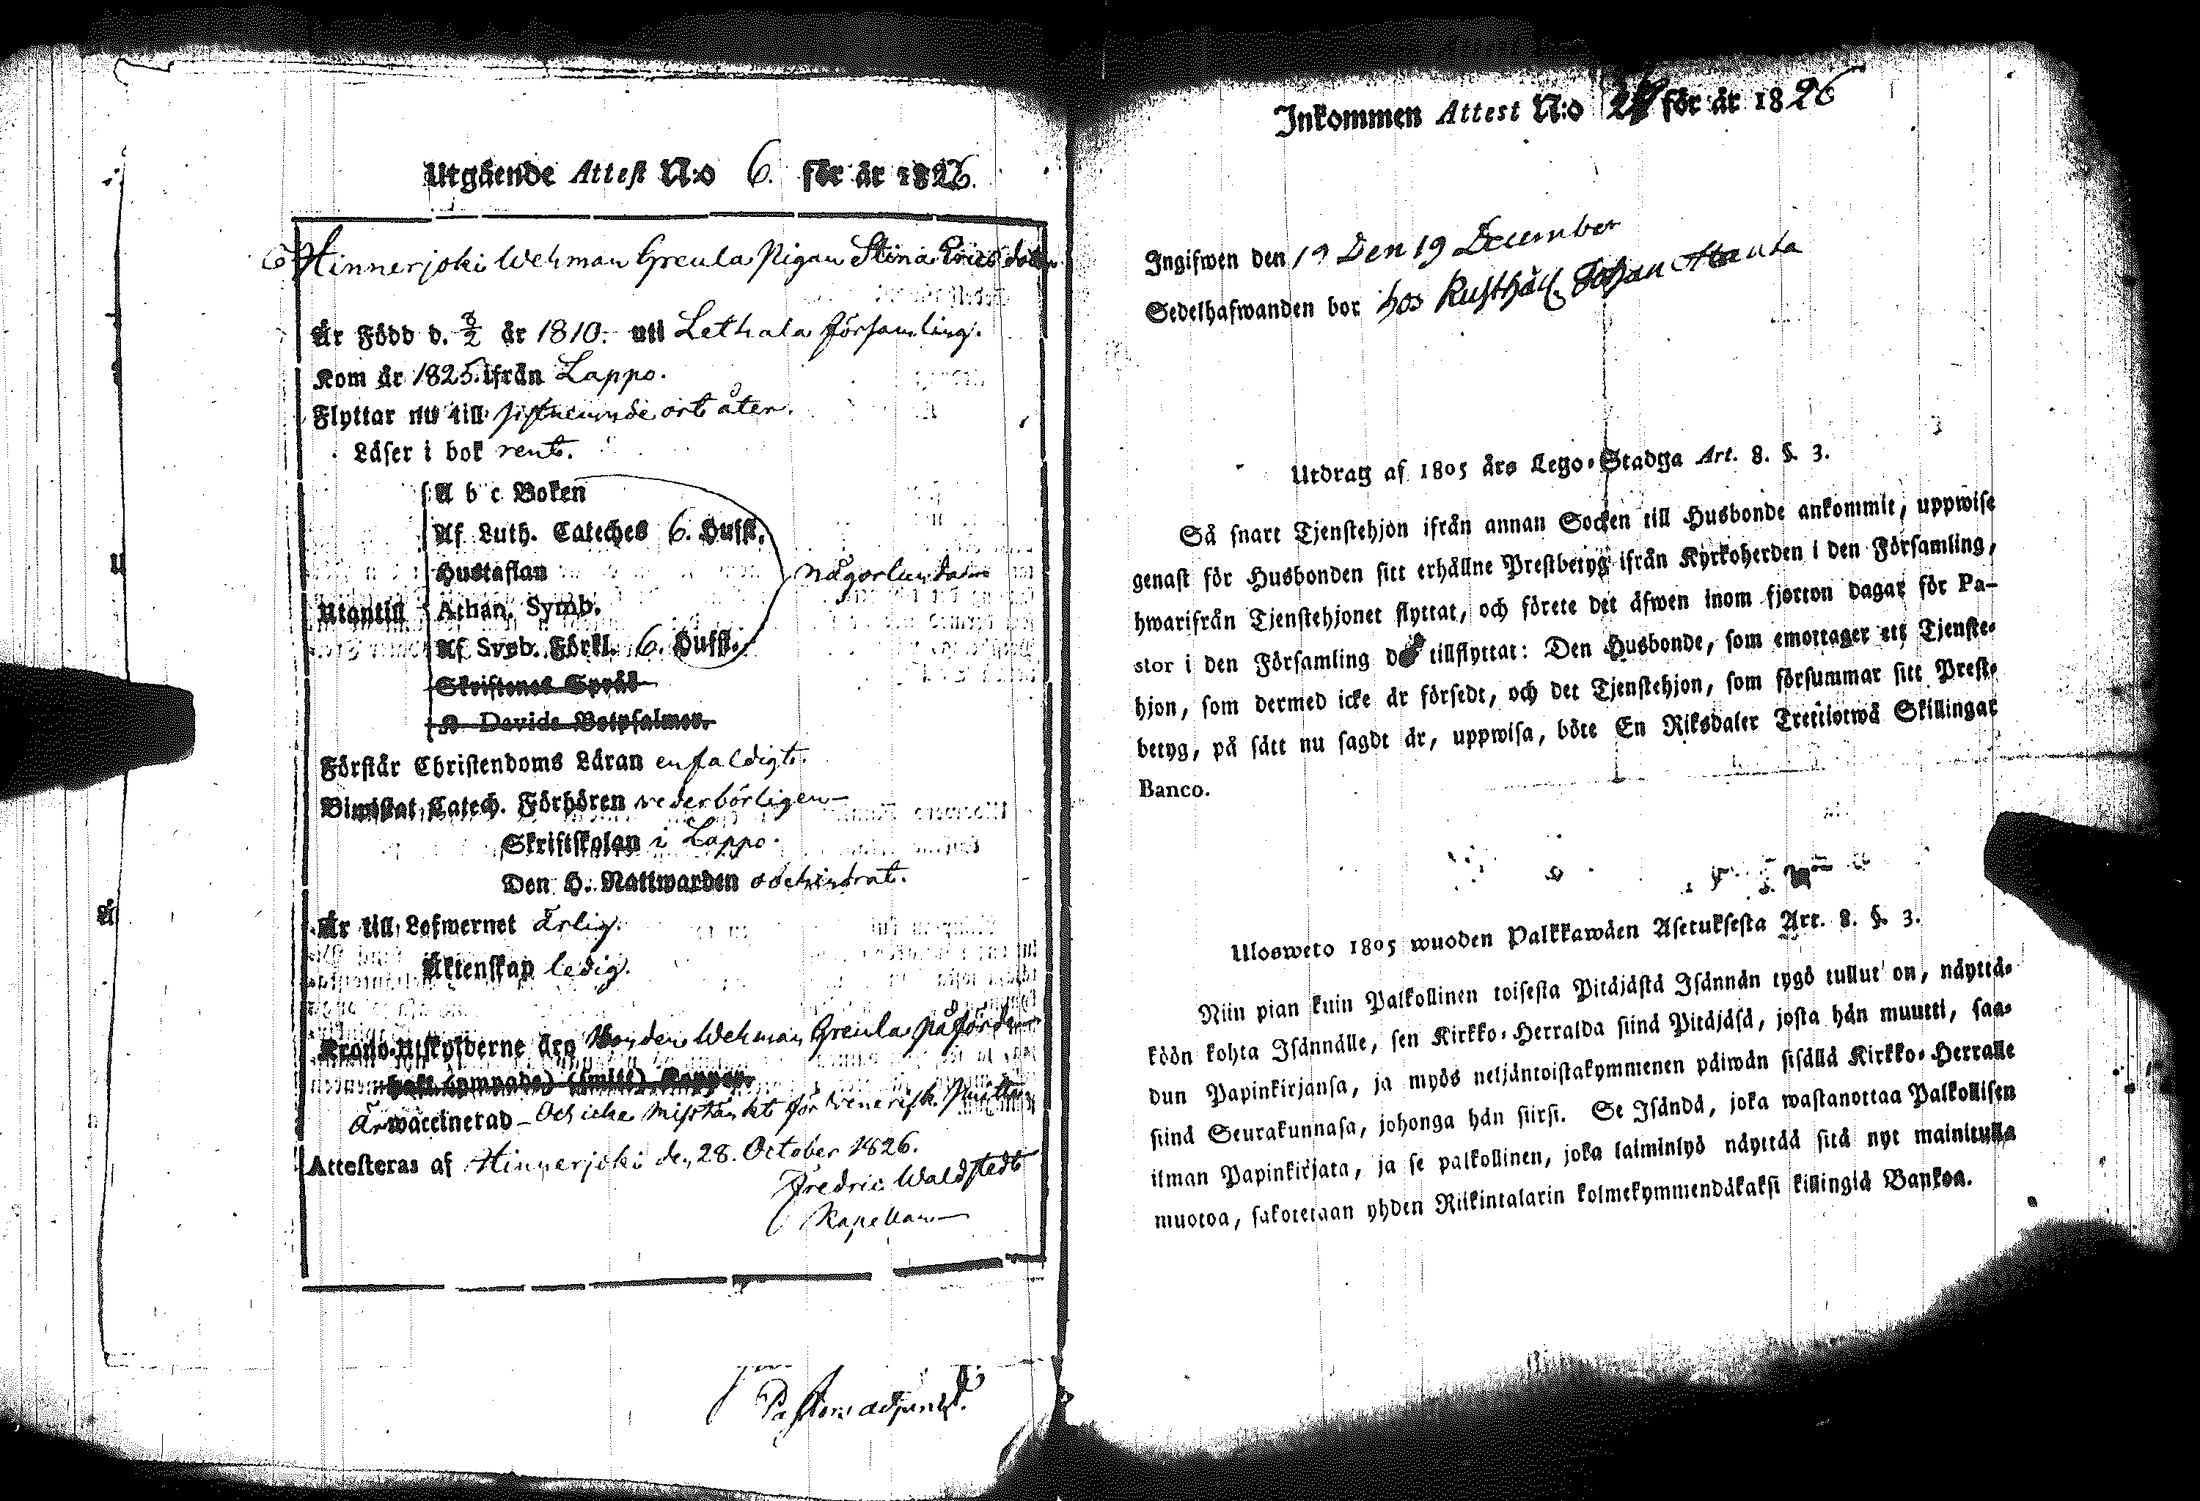 Utgående Attest N:o 6. för år 1826.
Hinnerjoki Wehman Greula Pigan Stina Ericsdotter
Är Född d. 8/2 år 1810. uti Lethala församling.
Kom år 1825. ifrån Lappo.
Flyttar nu till sistnemnde ort åter.
Läser i bok rent.
A b c Boken
Af Luth. Cateches 6. Hufst.
Hustaflan någorlunda
Utantill Athan. Symb.
Af Sveb. Förkl. 6. Hufst.
Skriftenes Språk
K. Davids Botpsalmer.
Förstår Christendoms Läran enfaldigt.
Biwistat Catech. Förhören vederbörligen
Skriftskolan i Lappo.
Den H. Nattwarden
Är till Lefwernet ärlig.
Äktenskap ledig.
Krono-Utskylderne äro Bonden Wehman Greula
haft (ympade) (smitt) Koppor.
Är waccinerad - Och icke misstänkt för Venerisk smitta
Attesteras af Hinnerjoki den 28. October 1826.
Fredric Waldstedt
Kapellan
Pastors adjunct.
Inkommen Attest N:o för år 1826
Ingifwen den 19 Den 19 December
Sedelhafwanden bor hos Rusthåll. Johan
Utdrag af 1805 års Lego-Stadga Art. 8. §. 3.
Så snart Tjenstehjon ifrån annan Socken till Husbonde ankommit, uppwise
genast för Husbonden sitt erhållne Prestbetyg ifrån Kyrkoherden i den Församling,
hwarifrån Tjenstehjonet flyttat, och förete det äfwen inom fjorton dagar för Pa-
stor i den Församling det tillflyttat: Den Husbonde, som emottager ett Tjenste-
hjon, som dermed icke är försedt, och det Tjenstehjon, som försummar sitt Prest-
betyg, på sätt nu sagdt är, uppwisa, böte En Riksdaler Trettiotwå Skillingar
Banco.
Ulosweto 1805 wuoden Palkkawäen Asetuksesta Art. 8. §. 3.
Niin pian kuin Palkollinen toisesta Pitäjästä Isännän tygö tullut on, näyttä-
köön kohta Isännälle, sen Kirkko-Herralda siinä Pitäjäsä, josta hän muutti, saa-
dun Papinkirjansa, ja myös neljäntoistakymmenen päiwän sisällä Kirkko-Herralle
siinä Seurakunnasa, johonga hän siirsi. Se Isändä, joka wastanottaa Palkollisen
ilman Papinkirjata, ja se palkollinen, joka laiminlyö näyttää sitä nyt mainitulla
muotoa, sakotetaan yhden Riikintalarin kolmekymmendäkaksi killingiä Bankoa.